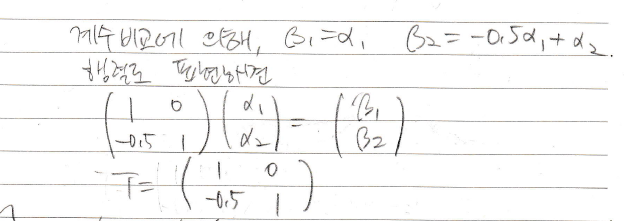 계수비교에 의해, β₁=α₁ β₂=-0.5α₁+α₂.
행렬로 표현하면
(1 0
-0.5 1)(α₁
α₂)=(β₁
β₂)
T=(1 0
-0.5 1)